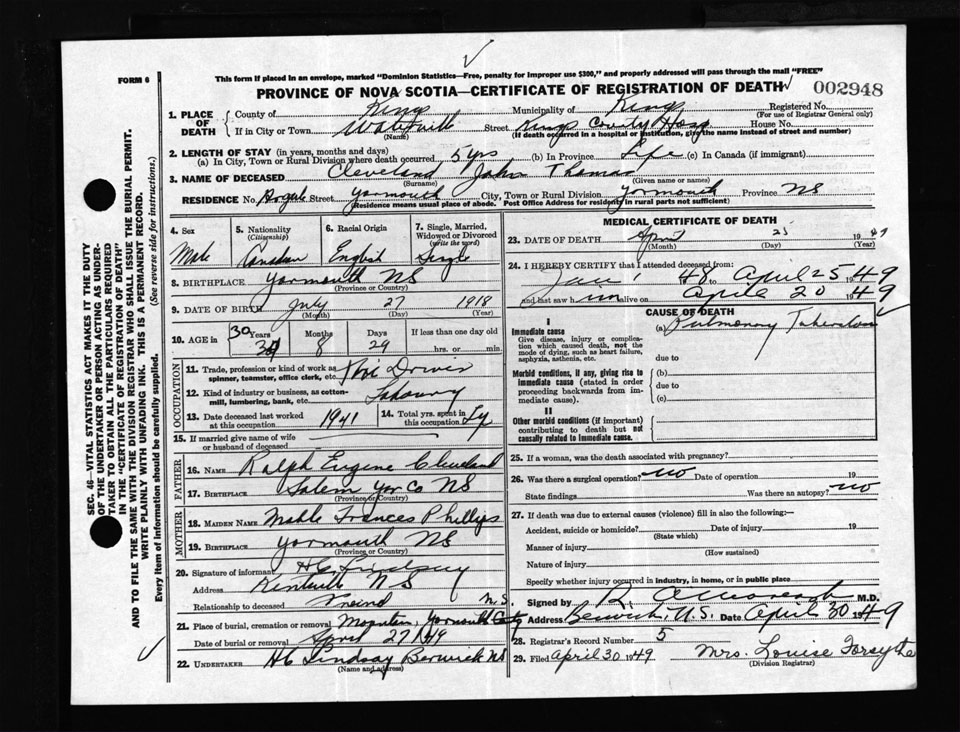 FORM 6
This form if placed in an envelope, marked "Dominion Statistics—Free, penalty for improper use $300," and properly addressed will pass through the mail "FREE"
PROVINCE OF NOVA SCOTIA—CERTIFICATE OF REGISTRATION OF DEATH 002948
1. PLACE OF DEATH County of Kings Municipality of Kings Registered No.
(For use of Registrar General only)
If in City or Town Waterville Street Kings County Hosp House No.
(Name) (If death occurred in a hospital or institution, give the name instead of street and number)
2. LENGTH OF STAY (in years, months and days)
(a) In City, Town or Rural Division where death occurred 5 yrs (b) In Province Life (c) In Canada (if immigrant)
3. NAME OF DECEASED Cleveland John Thomas
(Surname) (Given name or names)
RESIDENCE No. Argyle Street Yarmouth City, Town or Rural Division Yarmouth Province NS
(Residence means usual place of abode. Post Office Address for residents in rural parts not sufficient)
4. Sex 5. Nationality (Citizenship) 6. Racial Origin 7. Single, Married, Widowed or Divorced (write the word)
Male Canadian English Single
8. BIRTHPLACE Yarmouth NS
(Province or Country)
9. DATE OF BIRTH July 27 1918
(Month) (Day) (Year)
10. AGE in 30 Years Months 8 Days 29 If less than one day old
hrs. or min.
OCCUPATION
11. Trade, profession or kind of work as spinner, teamster, office clerk, etc.
12. Kind of industry or business, as cotton-mill, lumbering, bank, etc.
13. Date deceased last worked at this occupation 1941 14. Total yrs. spent in this occupation
15. If married give name of wife or husband of deceased
FATHER
16. NAME Ralph Eugene Cleveland
17. BIRTHPLACE Salem Yar Co NS
(Province or Country)
MOTHER
18. MAIDEN NAME Mable Frances Phillips
19. BIRTHPLACE Yarmouth NS
(Province or Country)
20. Signature of informant HC Lindsay
Address Kentville NS
Relationship to deceased Freind
21. Place of burial, cremation or removal Mountain, Yarmouth County N.S
Date of burial or removal April 27/49
22. UNDERTAKER HC Lindsay Berwick NS
(Name and address)
MEDICAL CERTIFICATE OF DEATH
23. DATE OF DEATH April 25 1949
(Month) (Day) (Year)
24. I HEREBY CERTIFY that I attended deceased from:
Jan 1 48 April 25 1949
and last saw him alive on April 20 1949
CAUSE OF DEATH
I
Immediate cause (a) Pulmonary Tuberculosis
Give disease, injury or complication which caused death, not the mode of dying, such as heart failure, asphyxia, asthenia, etc.
due to
Morbid conditions, if any, giving rise to immediate cause (stated in order proceeding backwards from immediate cause).
(b)
due to
(c)
II
Other morbid conditions (if important) contributing to death but not causally related to immediate cause.
25. If a woman, was the death associated with pregnancy?
26. Was there a surgical operation? no Date of operation 19
State findings Was there an autopsy? no
27. If death was due to external causes (violence) fill in also the following:—
Accident, suicide or homicide? Date of injury 19
(State which)
Manner of injury
(How sustained)
Nature of injury
Specify whether injury occurred in industry, in home, or in public place
Signed by M.D.
Address Berwick N.S. Date April 30 1949
28. Registrar's Record Number 5
29. Filed April 30 1949 Mrs. Louise Forsythe
(Division Registrar)
SEC. 46—VITAL STATISTICS ACT MAKES IT THE DUTY
OF THE UNDERTAKER OR PERSON ACTING AS UNDER-
TAKER TO OBTAIN ALL THE PARTICULARS REQUIRED
IN THE "CERTIFICATE OF REGISTRATION OF DEATH"
AND TO FILE THE SAME WITH THE DIVISION REGISTRAR WHO SHALL ISSUE THE BURIAL PERMIT.
WRITE PLAINLY WITH UNFADING INK. THIS IS A PERMANENT RECORD.
Every item of information should be carefully supplied. (See reverse side for instructions.)